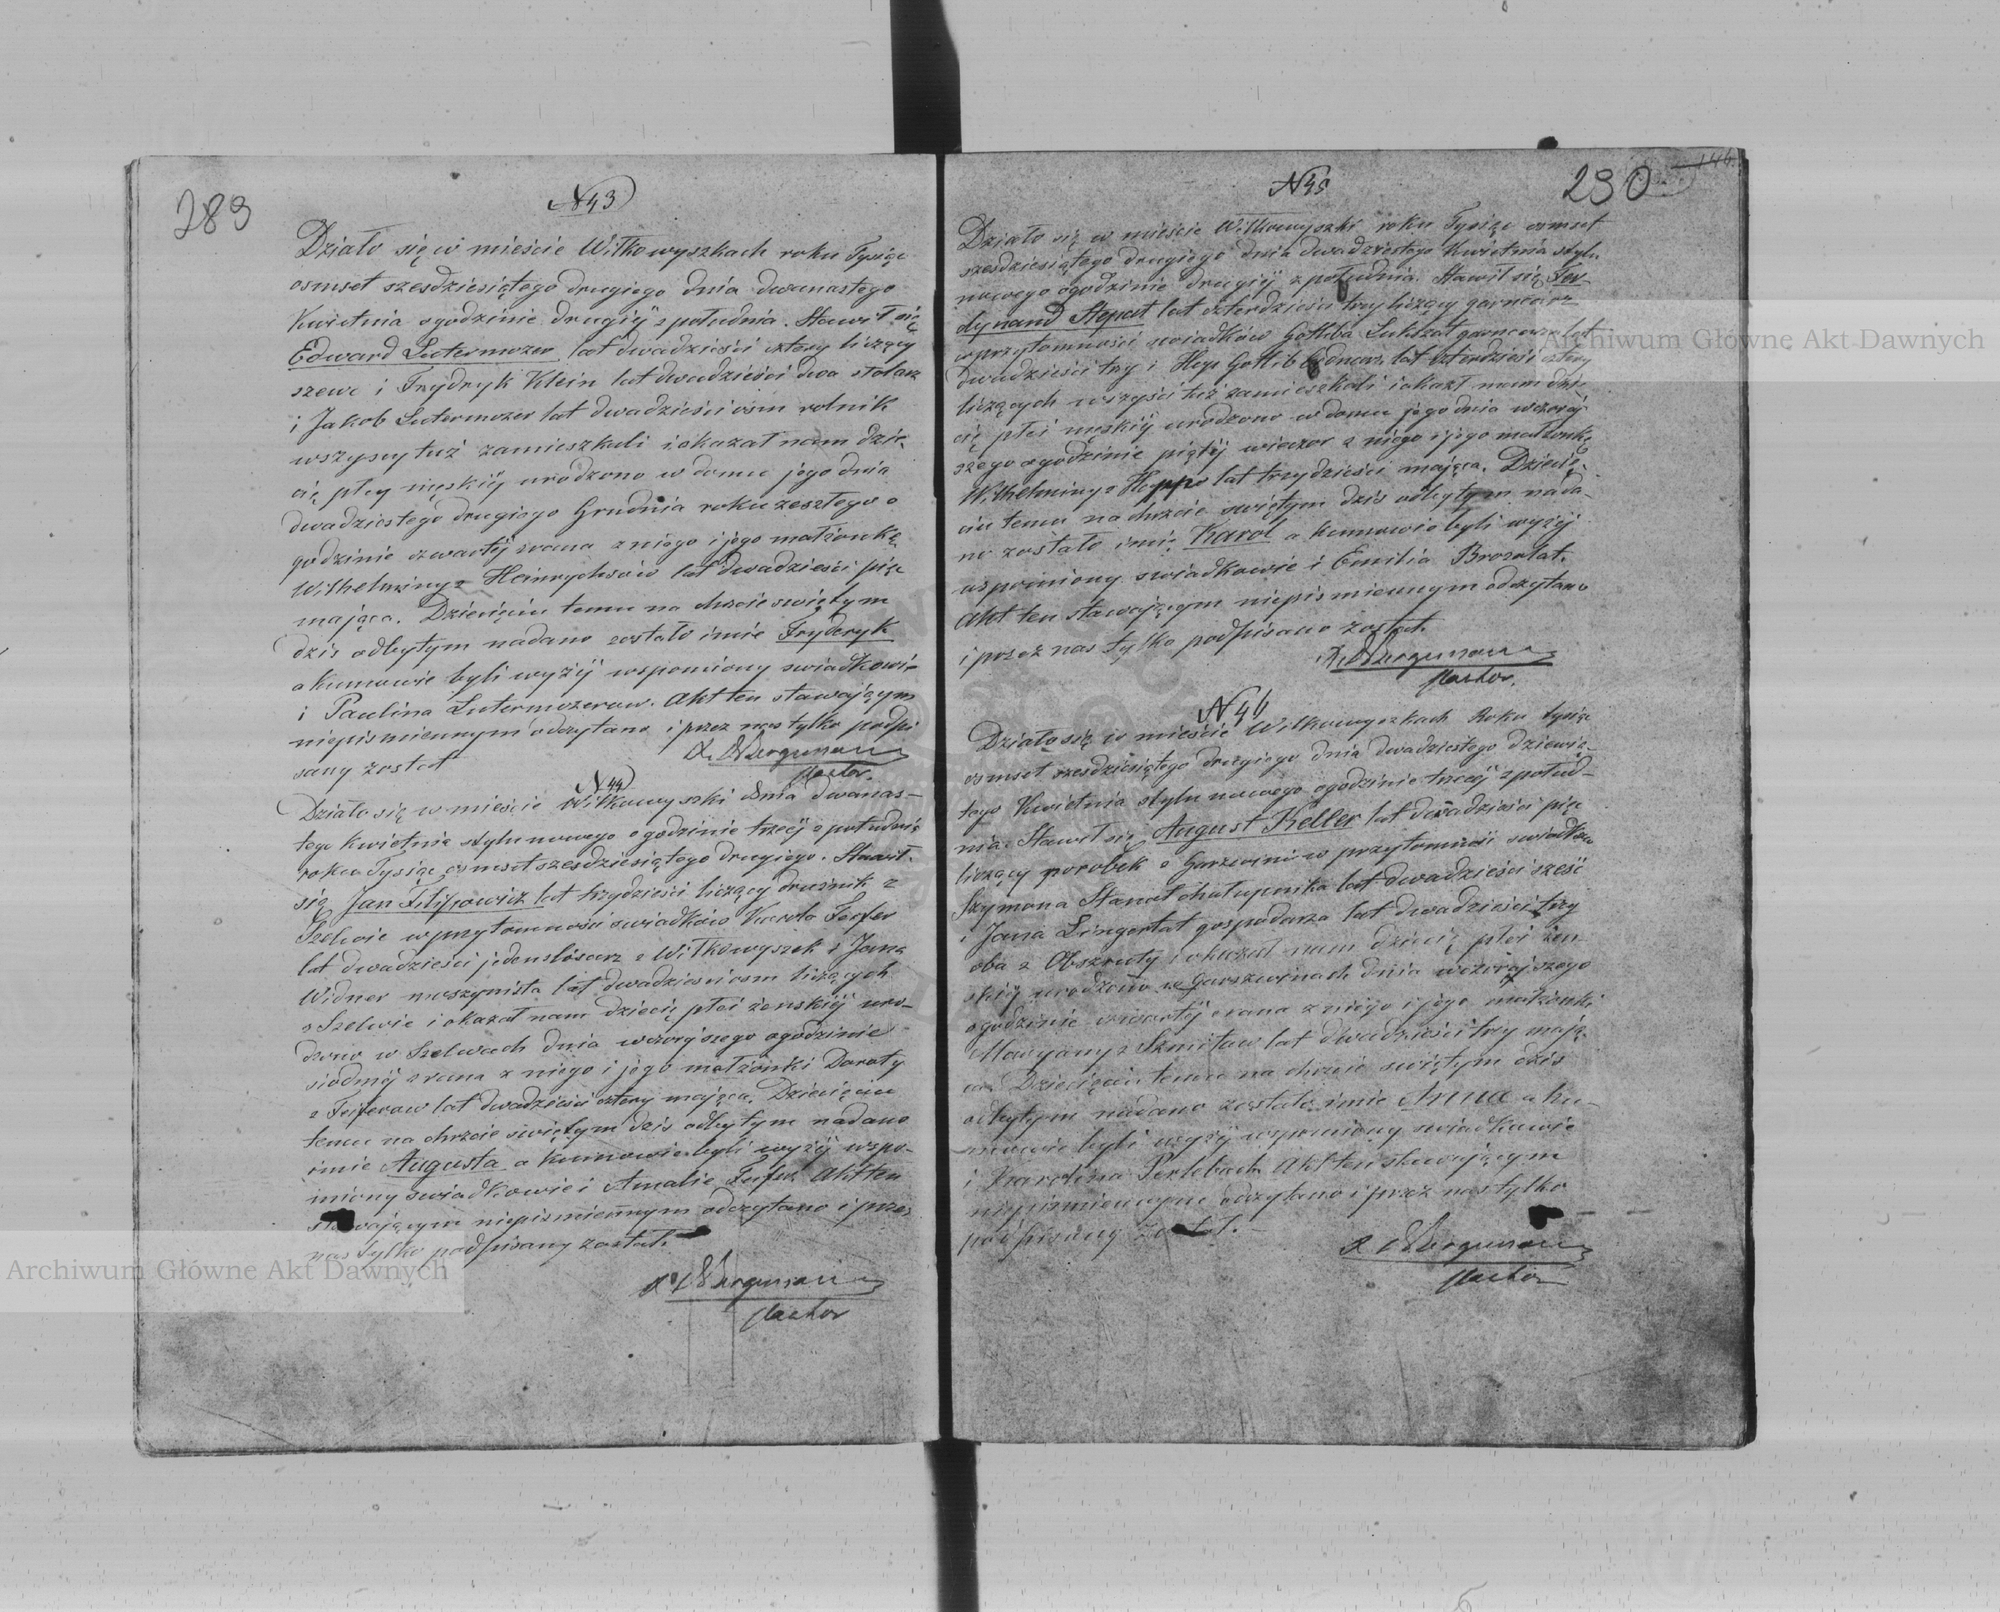 289
N 43
Działo się w mieście Wiłkowyszkach roku Tysiąc
osmset szesdziesiątego drugiego dnia dwunastego
Kwietnia o godzinie drugiÿ z południa. Stawił się
Edward Lutermozer lat dwadzieści cztery liczący
szewc i Frydryk Klein lat dwadzieści dwa stolarz
i Jakob Lutermozer lat dwadzieścia osm rolnik
wszyscy tuż zamieszkali i okazał nam dzie-
cię płcy męskiÿ urodzone w domu jego dnia
dwudziestego drugiego Grudnia roku zeszłego o
godzinie czwartÿ zrana z niego i jego małżonkę
Wilhelminy z Heinrychsów lat dwadzieści pięc
mająca. Dziecięciu temu na chrzcie swiętym
dzis odbytym nadano zostało imie Fryderyk
a kumowie byli wyżÿ wspomiony swiadkowie
i Paulina Lutermozerow. Akt ten stawającym
niepismiennym odczytano i przez nas tylko podpi
sany został
Pastor.
N 44
Działo się w mieście Wiłkowyszki dnia dwanas-
tego kwietnia stylu nowego o godzinie trzecÿ z południa
roku Tysiąc osmset szesdziesiątego drugiego. Stawił.
się Jan Filipowicz lat trzydzieści liczący druźnik z
Szelwie w przytomności swiadków Karola Feifer
lat dwadzieści jeden slósarz z Wiłkowyszek i Jana
Widner maszynista lat dwadzieścia osm liczących
z Szelwie i okazał nam dziecię płci żenskiÿ uro-
dzono w Szelwach dnia wczorÿszego o godzinie
siodmÿ zrana z niego i jego małżonki Doroty
z Feiferow lat dwadzieści cztery mająca. Dziecięciu
temu na chrzcie swiętym dzis odbytym nadano
imie Augusta a kumowie byli wyżÿ wspo-
miony swiadkowie i Amalie Feifer Akt ten
stawającym niepismiennym odczytano i przez
nas tylko podpisany został.
Pastor
N 45
230
146.
Działo się w mieście Wiłkowyszki roku Tysiąc osmset
szesdziesiątego drugiego dnia dwudziestego Kwietnia stylu
nowego o godzinie drugiÿ z południa. Stawił się Fer-
dynand Stepat lat czterdzieści trzy liczący garncarz
w przytomności swiadków Gottliba garncarz lat
dwadzieści trzy i Gottlib lat czterdzieści cztery
liczących wszyści tuż zamieszkali i okazał nam dzie
cię płci męskiÿ urodzono w domu jego dnia wczorÿ
szego o godzinie piątÿ wieczor z niego i jego małżonkę
Wilhelminy z Heppo lat trzydzieści mająca. Dziecię-
ciu temu na chrzcie swiętym dzis odbytym nada-
no zostało imie Karol a kumowie byli wyżÿ
wspomiony swiadkowie i Emilia Brozolat.
Akt ten stawającym niepismiennym odczytano
i przez nas tylko podpisano został.
Pastor.
N 46
Działo się w mieście Wiłkowyszkach Roku tysiąc
osmset szesdziesiątego drugiego dnia dwudziestego dziewią-
tego Kwietnia stylu nowego o godzinie trzecÿ z połud-
nia. Stawił się August Keller lat dwadzieści pięc
liczący parobek z w przytomności swiadków
Szymona Stanat chałupnika lat dwadzieści szesć
i Jana Lingertat gospodarza lat dwadzieści trzy
oba z Obszruty i okazał nam dziecię płci żen
skiÿ urodzono w dnia wczorajszego
o godzinie czwartÿ zrana z niego i jego małżonki
Maryany z Szmitow lat dwadzieści trzy mają
ca. Dziecięciu temu na chrzcie swiętym dzis
odbytym nadano zostało imie Anna a ku-
mowie byli wyżÿ wspomiony swiadkowie
i Karolina Perlebach Akt ten stawającym
niepismiennym odczytano i przez nas tylko
podpisany został.
Pastor
Archiwum Główne Akt Dawnych
Archiwum Główne Akt Dawnych